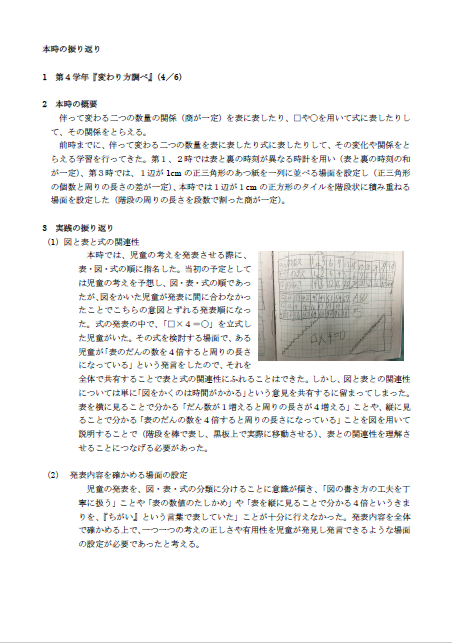 本時の振り返り
1　第４学年『変わり方調べ』（4／6）
2　本時の概要
伴って変わる二つの数量の関係（商が一定）を表に表したり、□や○を用いて式に表したりし
て、その関係をとらえる。
前時までに、伴って変わる二つの数量を表に表したり式に表したりして、その変化や関係をと
らえる学習を行ってきた。第１、２時では表と裏の時刻が異なる時計を用い（表と裏の時刻の和
が一定）、第３時では、１辺が1cmの正三角形のあつ紙を一列に並べる場面を設定し（正三角形
の個数と周りの長さの差が一定）、本時では１辺が１cmの正方形のタイルを階段状に積み重ねる
場面を設定した（階段の周りの長さを段数で割った商が一定）。
3　実践の振り返り
（1）図と表と式の関連性
本時では、児童の考えを発表させる際に、
表・図・式の順に指名した。当初の予定として
は児童の考えを予想し、図・表・式の順であっ
たが、図をかいた児童が発表に間に合わなかっ
たことでこちらの意図とずれる発表順になっ
た。式の発表の中で、「□×４＝○」を立式し
た児童がいた。その式を検討する場面で、ある
児童が「表のだんの数を４倍すると周りの長さ
になっている」という発言をしたので、それを
全体で共有することで表と式の関連性にふれることはできた。しかし、図と表との関連性
については単に「図をかくのは時間がかかる」という意見を共有するに留まってしまった。
表を横に見ることで分かる「だん数が１増えると周りの長さが４増える」ことや、縦に見
ることで分かる「表のだんの数を４倍すると周りの長さになっている」ことを図を用いて
説明することで（階段を棒で表し、黒板上で実際に移動させる）、表との関連性を理解さ
せることにつなげる必要があった。
□×4＝○
（2）　発表内容を確かめる場面の設定
児童の発表を、図・表・式の分類に分けることに意識が傾き、「図の書き方の工夫を丁
寧に扱う」ことや「表の数値のたしかめ」や「表を縦に見ることで分かる４倍というきま
りを、『ちがい』という言葉で表していた」ことが十分に行えなかった。発表内容を全体
で確かめる上で、一つ一つの考えの正しさや有用性を児童が発見し発言できるような場面
の設定が必要であったと考える。